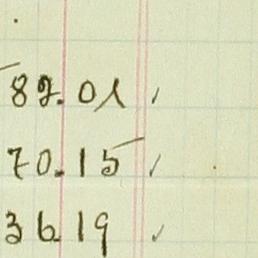 82.01
70.15
36.19